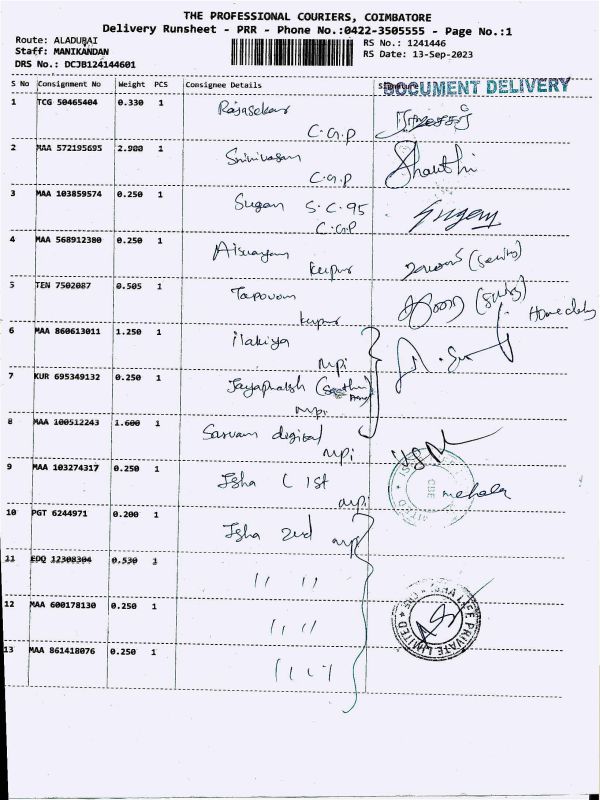 THE PROFESSIONAL COURIERS, COIMBATORE
Delivery Runsheet - PRR - Phone No.:0422-3505555 - Page No.:1
Route: ALADURAI
Staff: MANIKANDAN
DRS No.: DCJB124144601
RS No.: 1241446
RS Date: 13-Sep-2023
S No Consignment No Weight PCS Consignee Details Signature
DOCUMENT DELIVERY
1 TCG 50465404 0.330 1 Rajasekar
C.G.P
2 MAA 572195695 2.900 1 Srinivasan Shanthi
C.G.P
3 MAA 103859574 0.250 1 Sugan S.C.95 Sugan
C.G.P
4 MAA 568912380 0.250 1
5 TEN 7502087 0.505 1 Tapovam
Home
6 MAA 860613011 1.250 1
mpi
7 KUR 695349132 0.250 1
mpi
8 MAA 100512243 1.600 1 Sarvam digital
mpi
9 MAA 103274317 0.250 1 Isha 1st
mpi
CBE mehala
10 PGT 6244971 0.200 1 Isha 2nd mpi
11 EDQ 12308304 0.530 1 〃 〃
12 MAA 600178130 0.250 1 〃 〃
ISHA LIFE PRIVATE LIMITED * CBE *
13 MAA 861418076 0.250 1 〃 〃